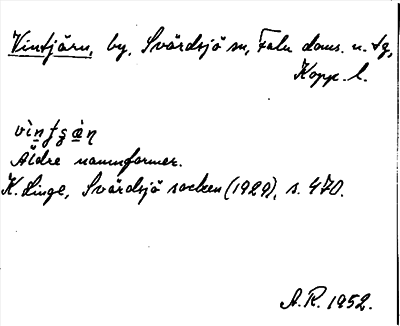 Vintjärn, by, Svärdsjö sn, Falu doms. n. tg,
Kopp. l.
Äldre namnformer.
K. Linge, Svärdsjö socken (1929), s. 470.
A.R. 1952.